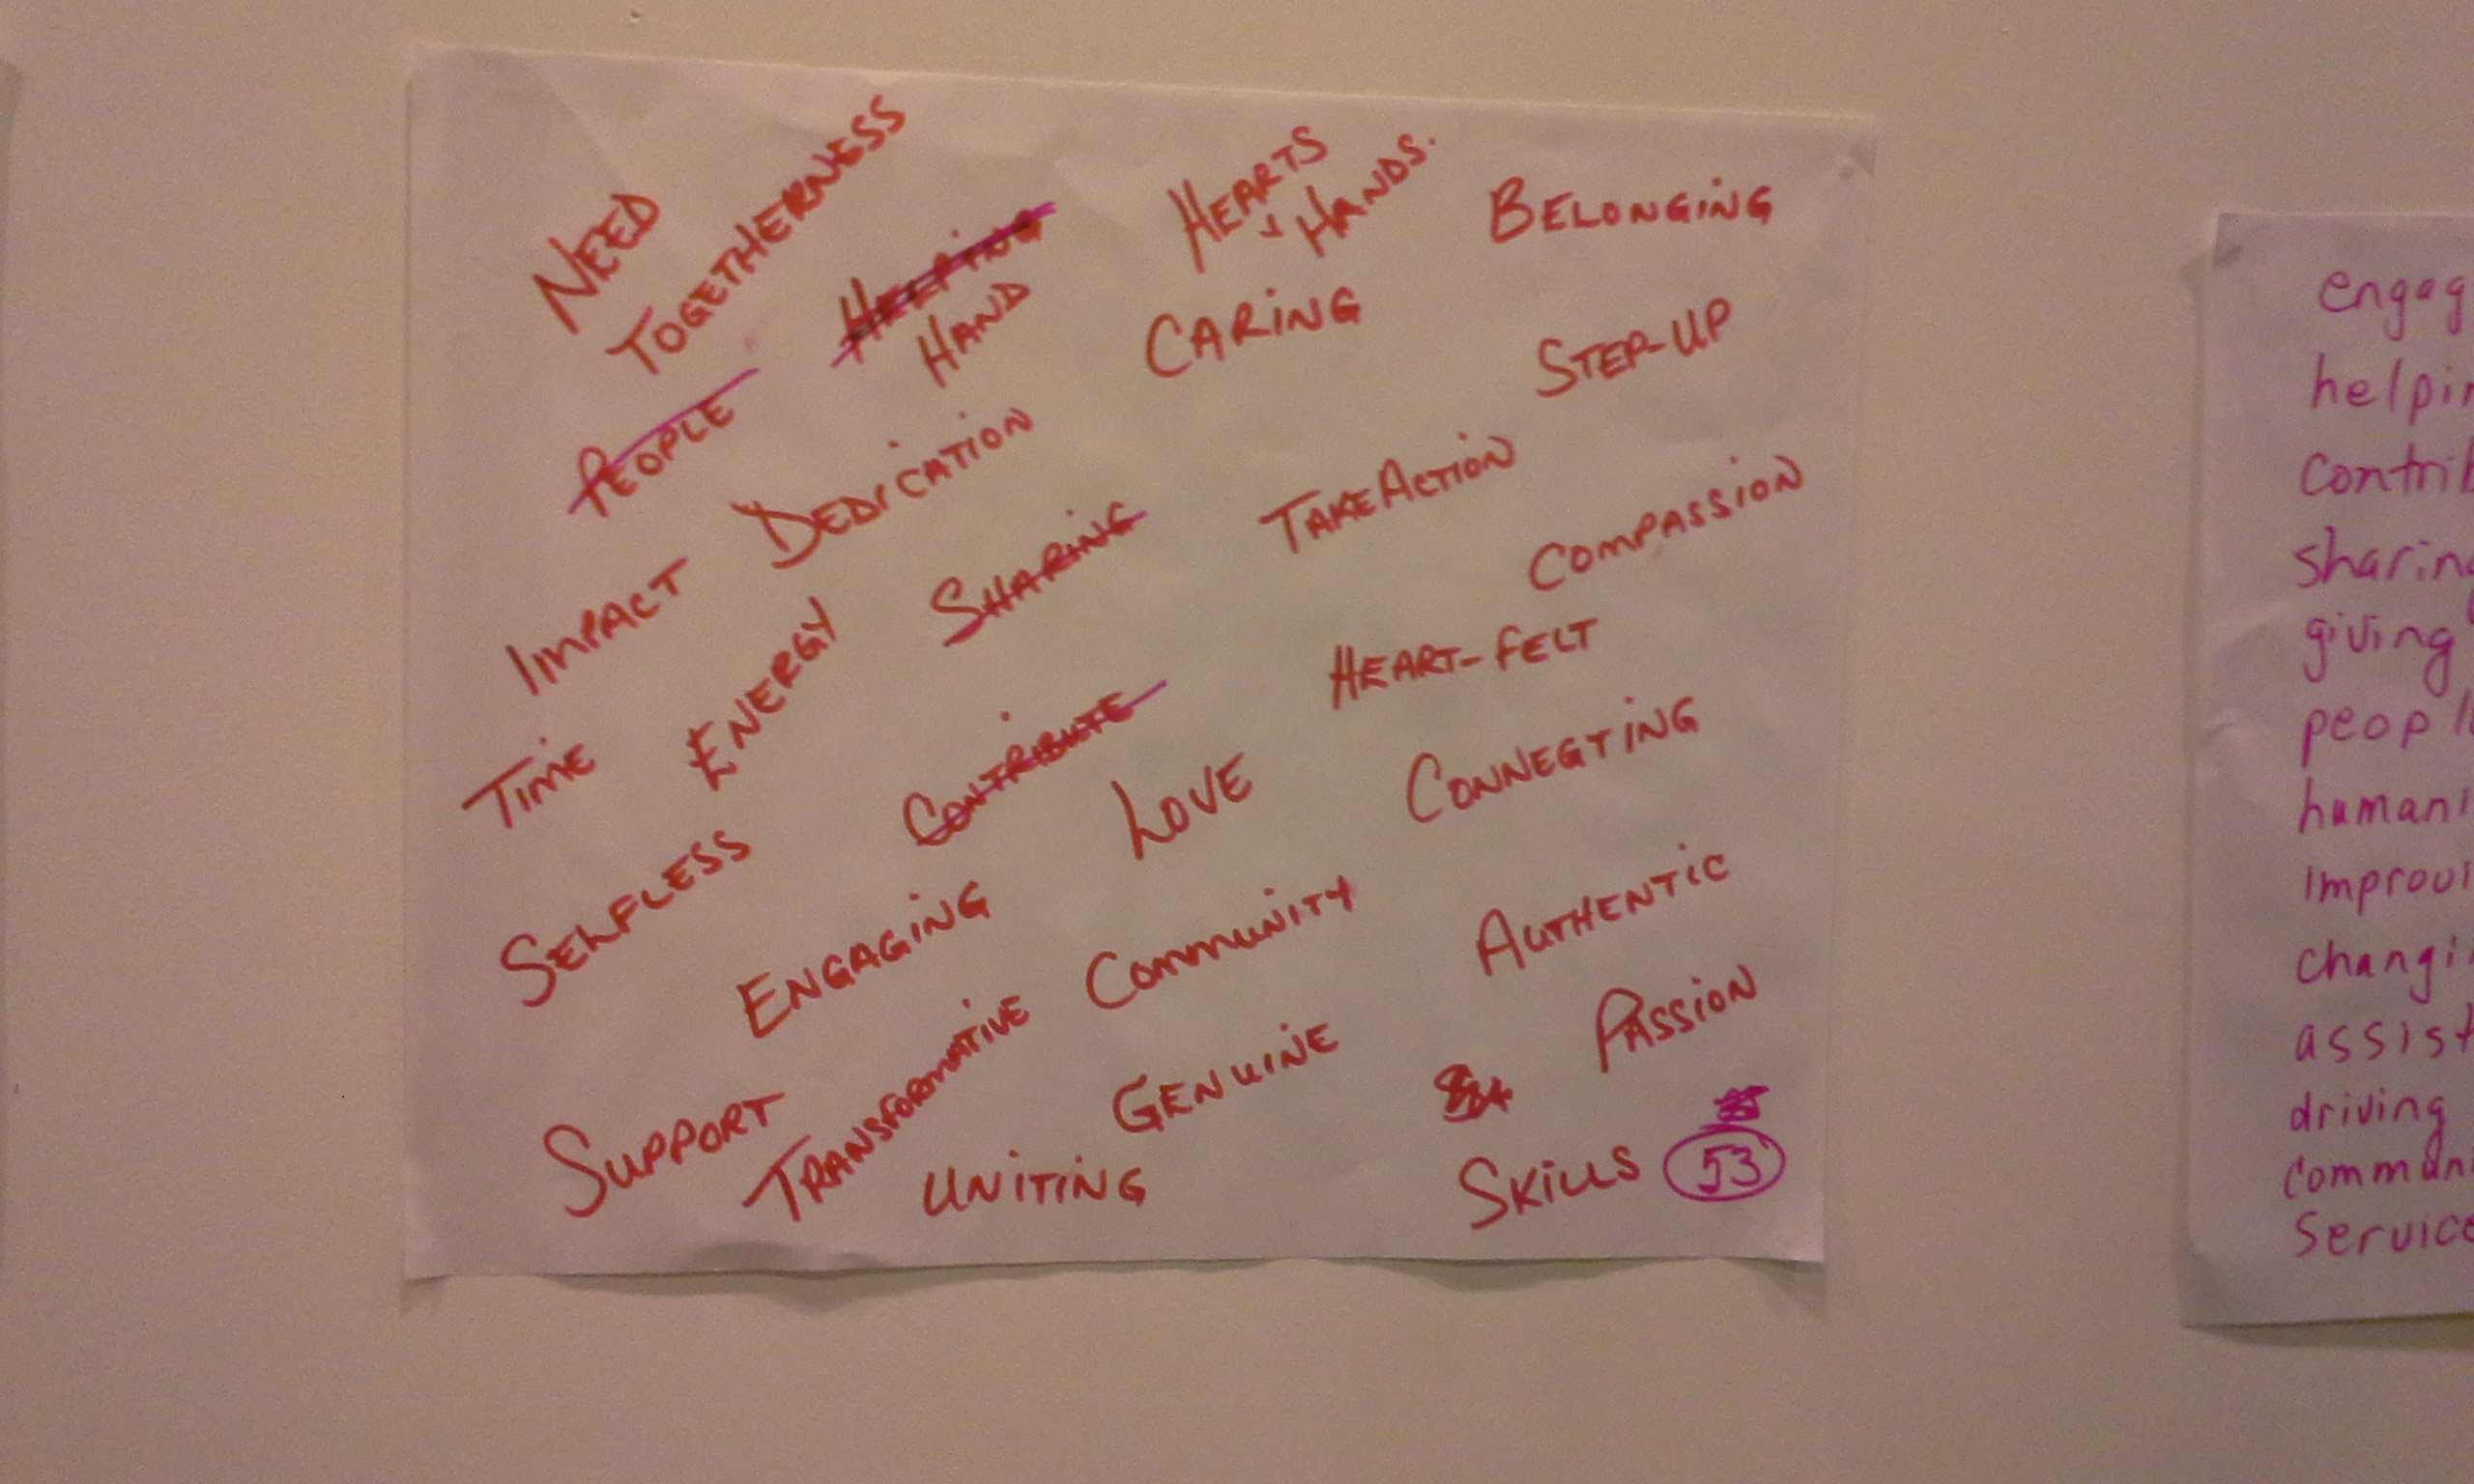 NEED
TOGETHERNESS
HELPING
HAND
HEARTS
+ HANDS.
BELONGING
PEOPLE
CARING
STEP-UP
DEDICATION
IMPACT
SHARING
TAKE ACTION
COMPASSION
TIME
ENERGY
HEART-FELT
CONTRIBUTE
LOVE
CONNECTING
SELFLESS
ENGAGING
COMMUNITY
AUTHENTIC
SUPPORT
TRANSFORMATIVE
GENUINE
PASSION
UNITING
SKILLS 53
engag
helpin
contrib
sharing
giving
peopl
humani
improvi
changi
assist
driving
communi
Service